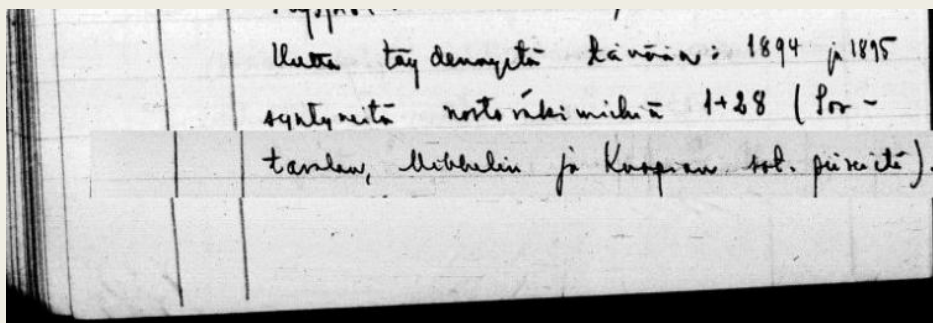 Uutta täydennystä tänään: 1894 ja 1895
syntyneitä nostoväkimiehiä 1+28 (Sor-
tavalan, Mikkelin ja Kuopion sot. piireistä).